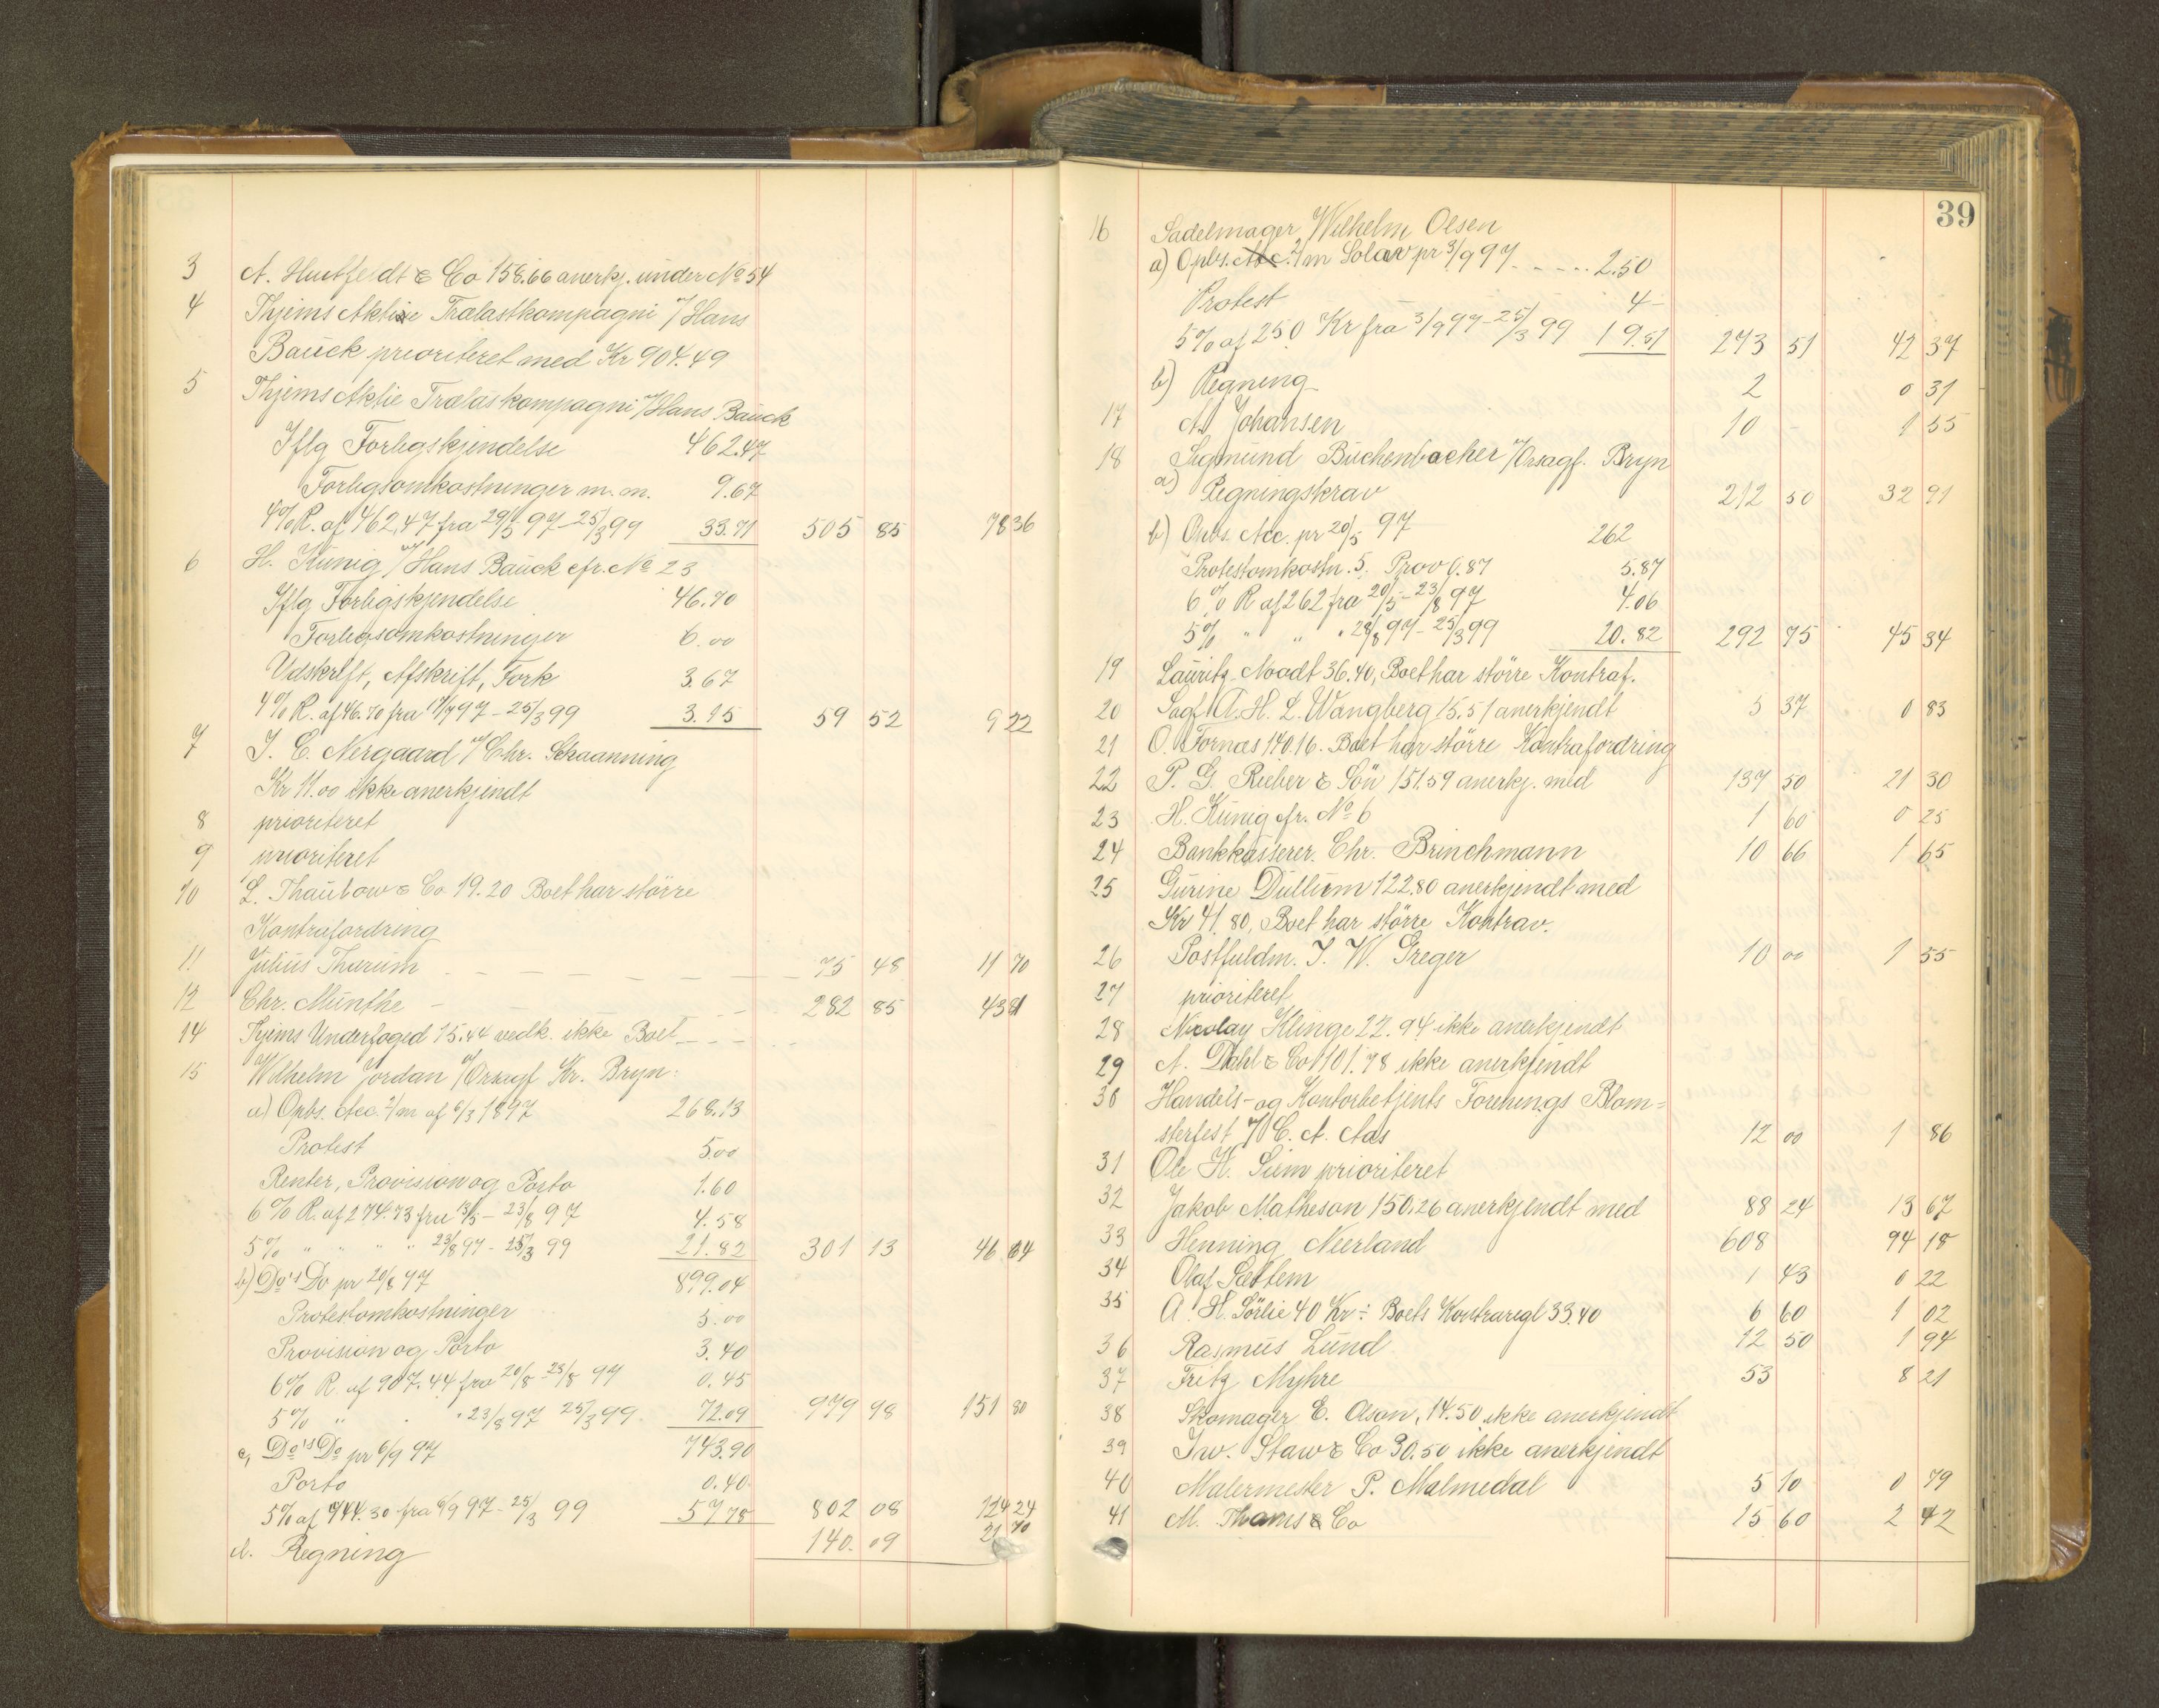 3 A. Huitfeldt & Co 158.66 anerkj. under No 54
4 Thjems Aktie Trælastkompagni v/ Hans
Bauck prioriteret med Kr 904.49
5 Thjems Aktie Trælaskompagni v/ Hans Bauck
Iflg Forligskjendelse 462.47
Forligsomkostninger m.m. 9.67
4% R. af 462,47 fra 29/5 97 - 25/3 99 33.71 505 85 78 36
6 H. Künig v/ Hans Bauck cfr. No 23
Iflg Forligskjendelse 46.70
Forligsomkostninger 6.00
Udskrift, Afskrift, Fork 3.67
4% R. af 46.70 fra 17/7 97 - 25/3 99 3.15 59 52 9 22
7 I. E. Nergaard v/ Chr. Skaanning
Kr 11.00 ikke anerkjendt
8 prioriteret
9 prioriteret
10 L. Thaulow & Co 19.20 Boet har större
Kontrafordring
11 Julius Thurum 75 48 11 70
12 Chr. Munthe 282 85 43 81
14 Thjems Underfoged 15.44 vedk. ikke Boet
15 Wilhelm Jordan v/ Orsagf Kr. Bryn:
a) Opbs. Acc. 2/m af 6/3 1897 268.13
Protest 5.00
Renter, Provision og Porto 1.60
6% R. af 274.73 fra 13/5 - 23/8 97 4.58
5% " " " " 23/8 97 - 25/3 99 21.82 301 13 46 64
b) Do's Do pr 20/8 97 899.04
Protestomkostninger 5.00
Provision og Porto 3.40
6% R. af 907.44 fra 20/8 - 23/8 97 0.45
5% " " " 23/8 97 25/3 99 72.09 979 98 151 80
c, Do's Do pr 6/9 97 743.90
Porto 0.40
5% af 744.30 fra 6/9 97 - 25/3 99 57 78 802 08 124 24
d. Regning 140. 09 21 70
39
16 Sadelmager Wilhelm Olsen
a) Opbs. Acc. 2/m Solav pr 3/9 97 2.50
Protest 4 -
5% af 250 Kr fra 3/9 97 - 25/3 99 19.51 273 51 42 37
b) Regning 2 0 31
17 A. Johansen 10 - 1 55
18 Sigmund Buchenbacher v/ Orsagf. Bryn
a) Regningskrav 212 50 32 91
b) Opbs. Acc. pr 20/5 97 262
Protestomkostn. 5. Prov 0.87 5.87
6% R af 262 fra 20/5 - 23/8 97 4.06
5% " " " 23/8 97 - 25/3 99 20.82 292 75 45 34
19 Lauritz Noodt 36.40, Boet har större Kontraf.
20 Sagf. A. H. L. Wangberg 15.51 anerkjendt 5 37 0 83
21 O. Fornæs 140.16. Boet har större Kontrafordring
22 P. G. Rieber & Sön 151.59 anerkj. med 137 50 21 30
23 H. Künig cfr. No 6 1 60 0 25
24 Bankkasserer. Chr. Brinchmann 10 66 1 65
25 Gurine Dullum 122.80 anerkjendt med
Kr 41.80, Boet har större Kontrav.
26 Postfuldm. J. W. Greger 10 00 1 55
27 prioriteret
28 Nicolay Klinge 22.94 ikke anerkjendt
29 A. Dahl & Co 1101.78 ikke anerkjendt
30 Handels- og Kontorbetjents Forenings Blom=
sterfest v/ C. A. Aas 12 00 1 86
31 Ole H. Siem prioriteret
32 Jakob Matheson 150.26 anerkjendt med 88 24 13 67
33 Henning Neerland 608 94 18
34 Olaf Sættem 1 43 0 22
35 A. H. Sörlie 40 Kr ÷ Boets Kontraregl 33.40 6 60 1 02
36 Rasmus Lund 12 50 1 94
37 Fritz Myhre 53 8 21
38 Skomager E. Olson, 14.50 ikke anerkjendt
39 Inv. Staw & Co 30.50 ikke anerkjendt
40 Malermester P. Malmedal 5 10 0 79
41 M. Thams & Co 15 60 2 42